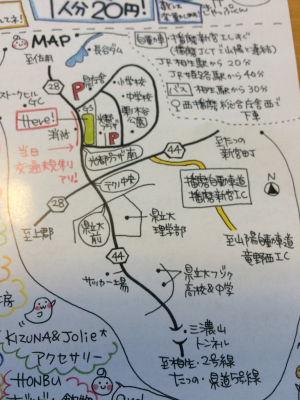 1人分20円!
MAP
長谷ダム
至佐用
28
県庁舎
小学校
中学校
P
ストークヒル
GC
Here!
消防
光都
プラザ
P
公園
当日
交通規制
アリ!
光都プラザ南
44
至たつの
新宮町
テクノ中央
28
至上郡
県立大前
県立大
理学部
播磨自動車道
播磨新宮IC
N
至山陽自動車道
竜野西IC
44
サッカー場
県立大フゾク
高校&中学
三濃山
トンネル
至相生・2号線
たつの・県道5号線
播磨新宮ICすぐ
(播磨JCTで山陽と連結)
JR相生駅から20分
JR姫路駅から40分
バス
相生駅から30分
西播磨総合庁舎西で
下車
KIZUNA&Jolie*
アクセサリー
HONBU